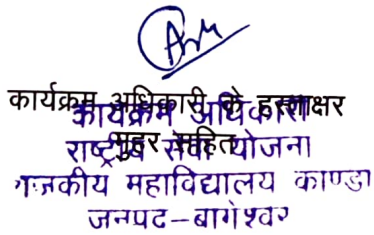 कार्यक्रम अधिकारी के हस्ताक्षर
मुहर सहित
कार्यक्रम अधिकारी
राष्ट्रीय सेवा योजना
राजकीय महाविद्यालय काण्डा
जनपद-बागेश्वर